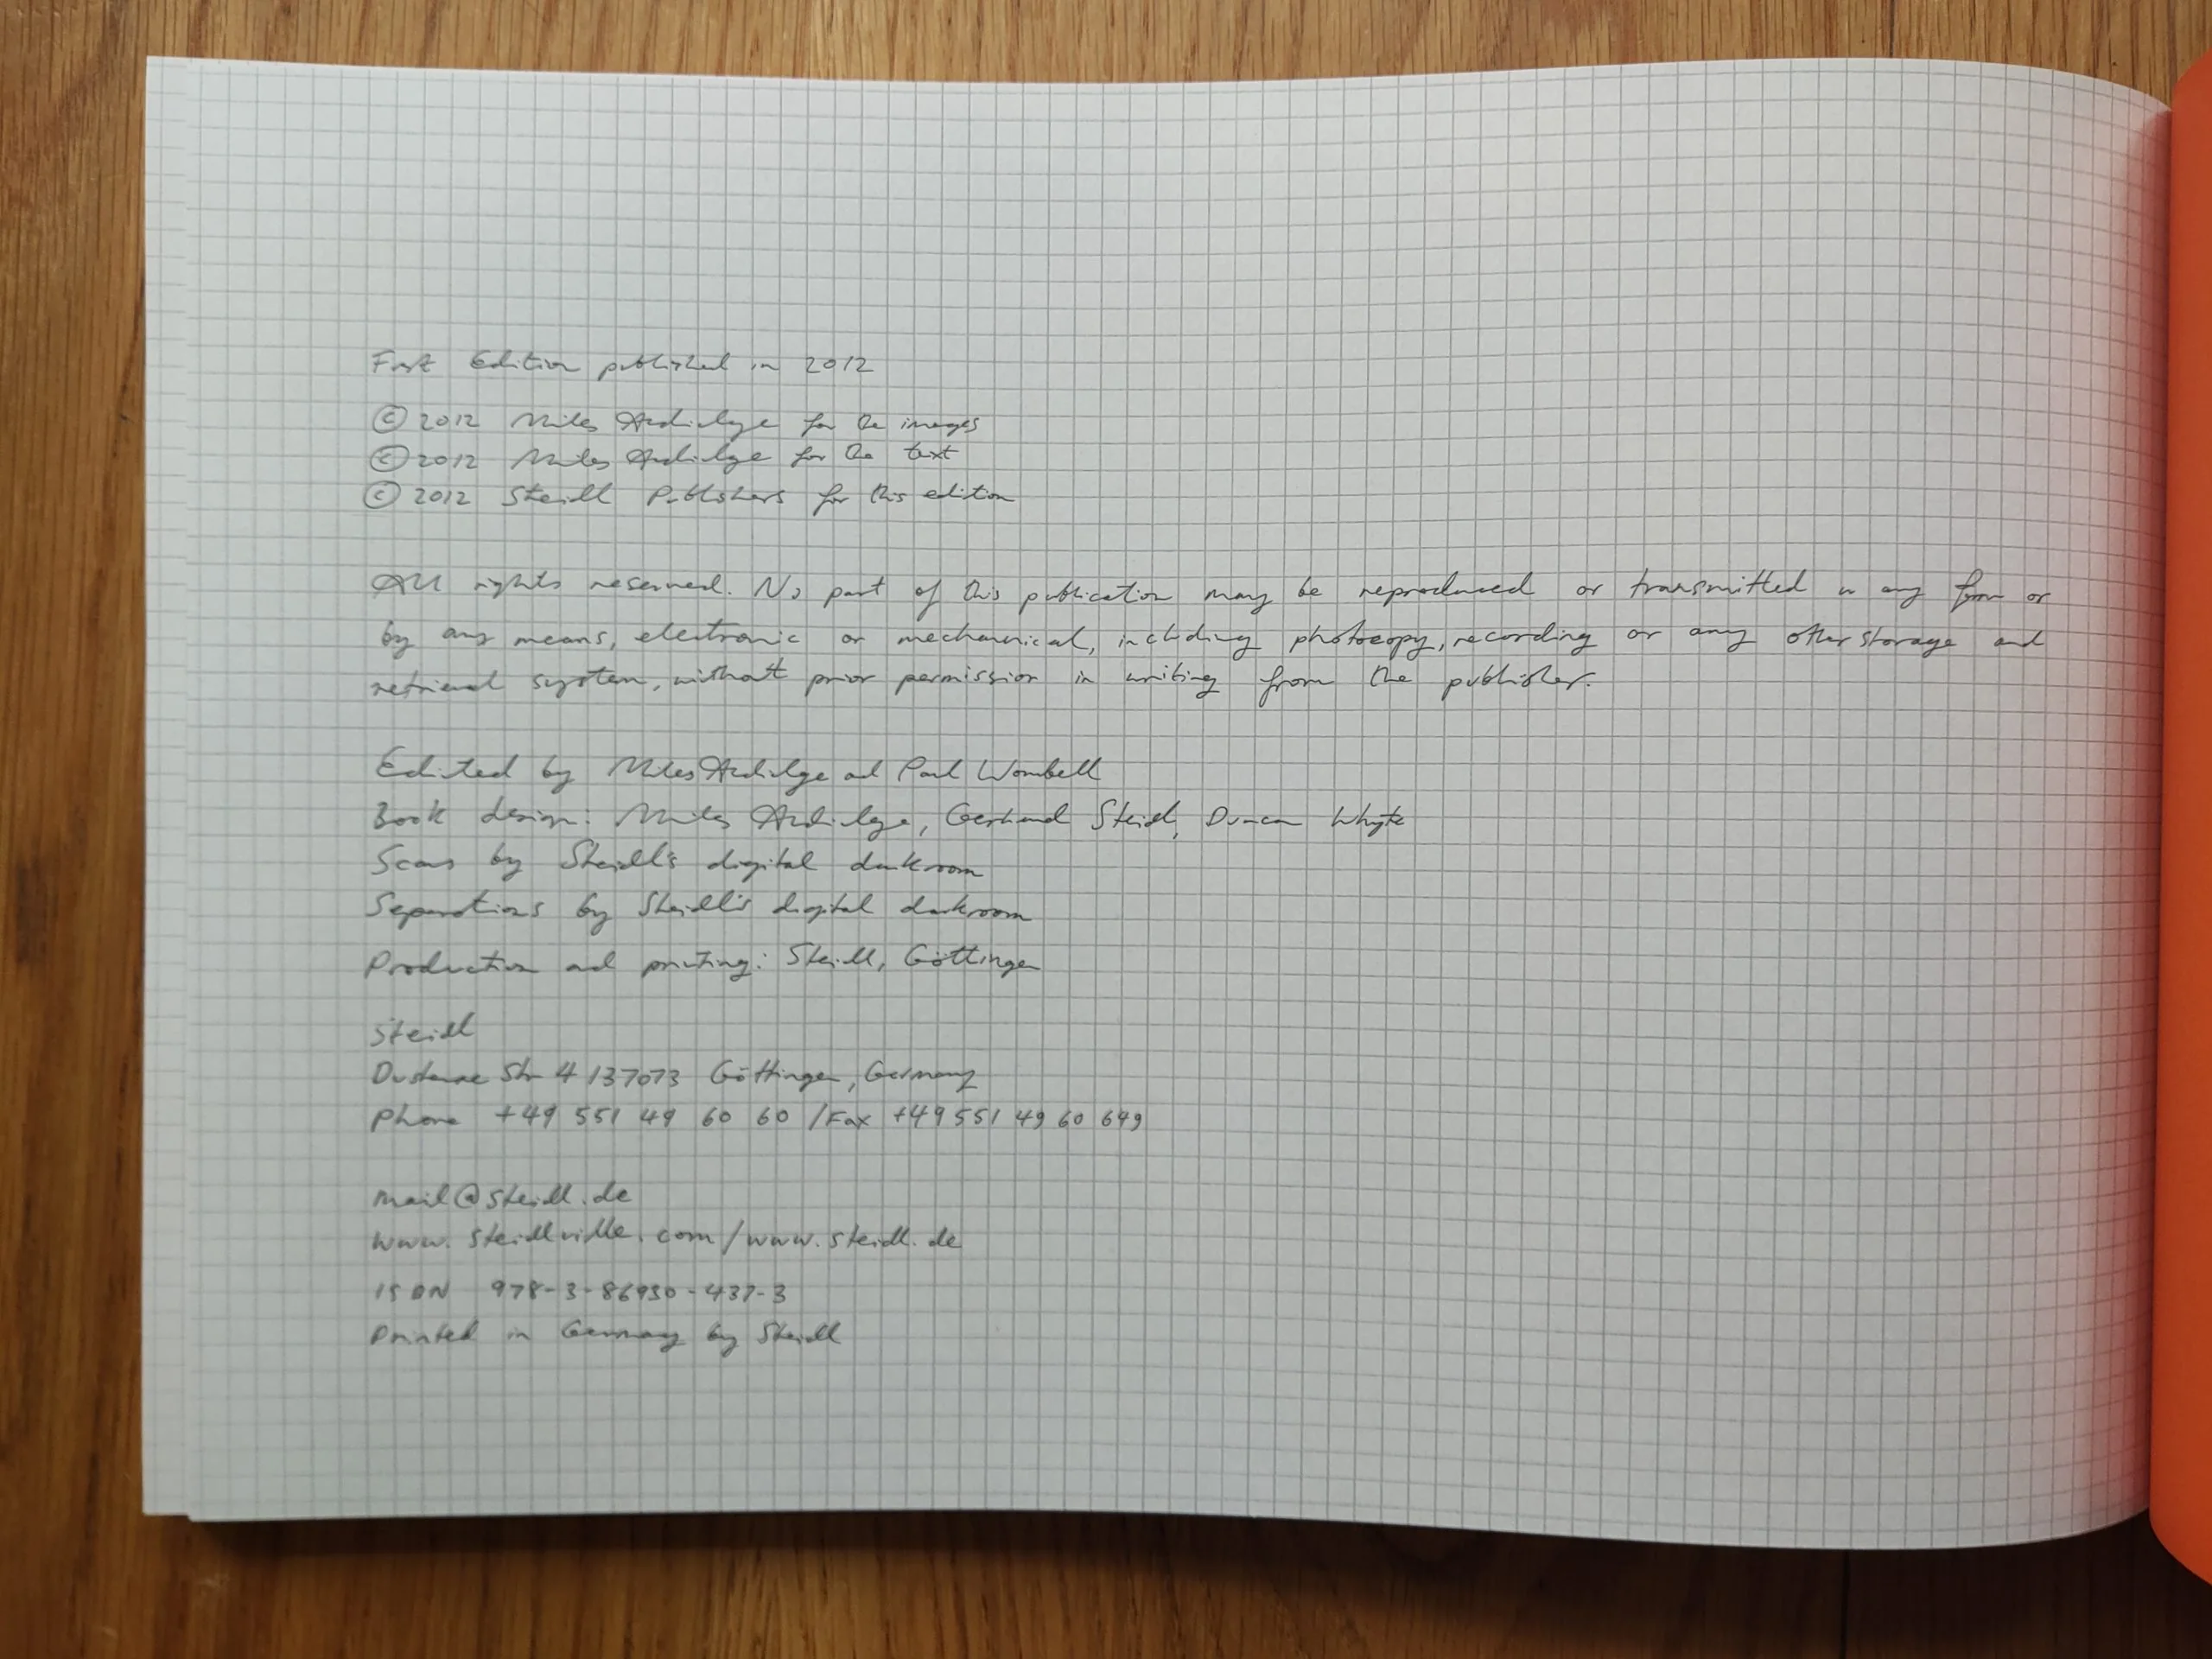 First Edition published in 2012
© 2012 Miles Aldridge for the images
© 2012 Miles Aldridge for the text
© 2012 Steidl Publishers for this edition
All rights reserved. No part of this publication may be reproduced or transmitted in any form or
by any means, electronic or mechanical, including photocopy, recording or any other storage and
retrieval system, without prior permission in writing from the publisher.
Edited by Miles Aldridge and Paul Wombell
Book design: Miles Aldridge, Gerhard Steidl, Duncan Whyte
Scans by Steidl's digital darkroom
Separations by Steidl's digital darkroom
Production and printing: Steidl, Göttingen
Steidl
Dustere Str 4 / 37073 Göttingen, Germany
Phone +49 551 49 60 60 / Fax +49 551 49 60 649
mail@steidl.de
www.steidlville.com / www.steidl.de
ISBN 978-3-86930-437-3
Printed in Germany by Steidl